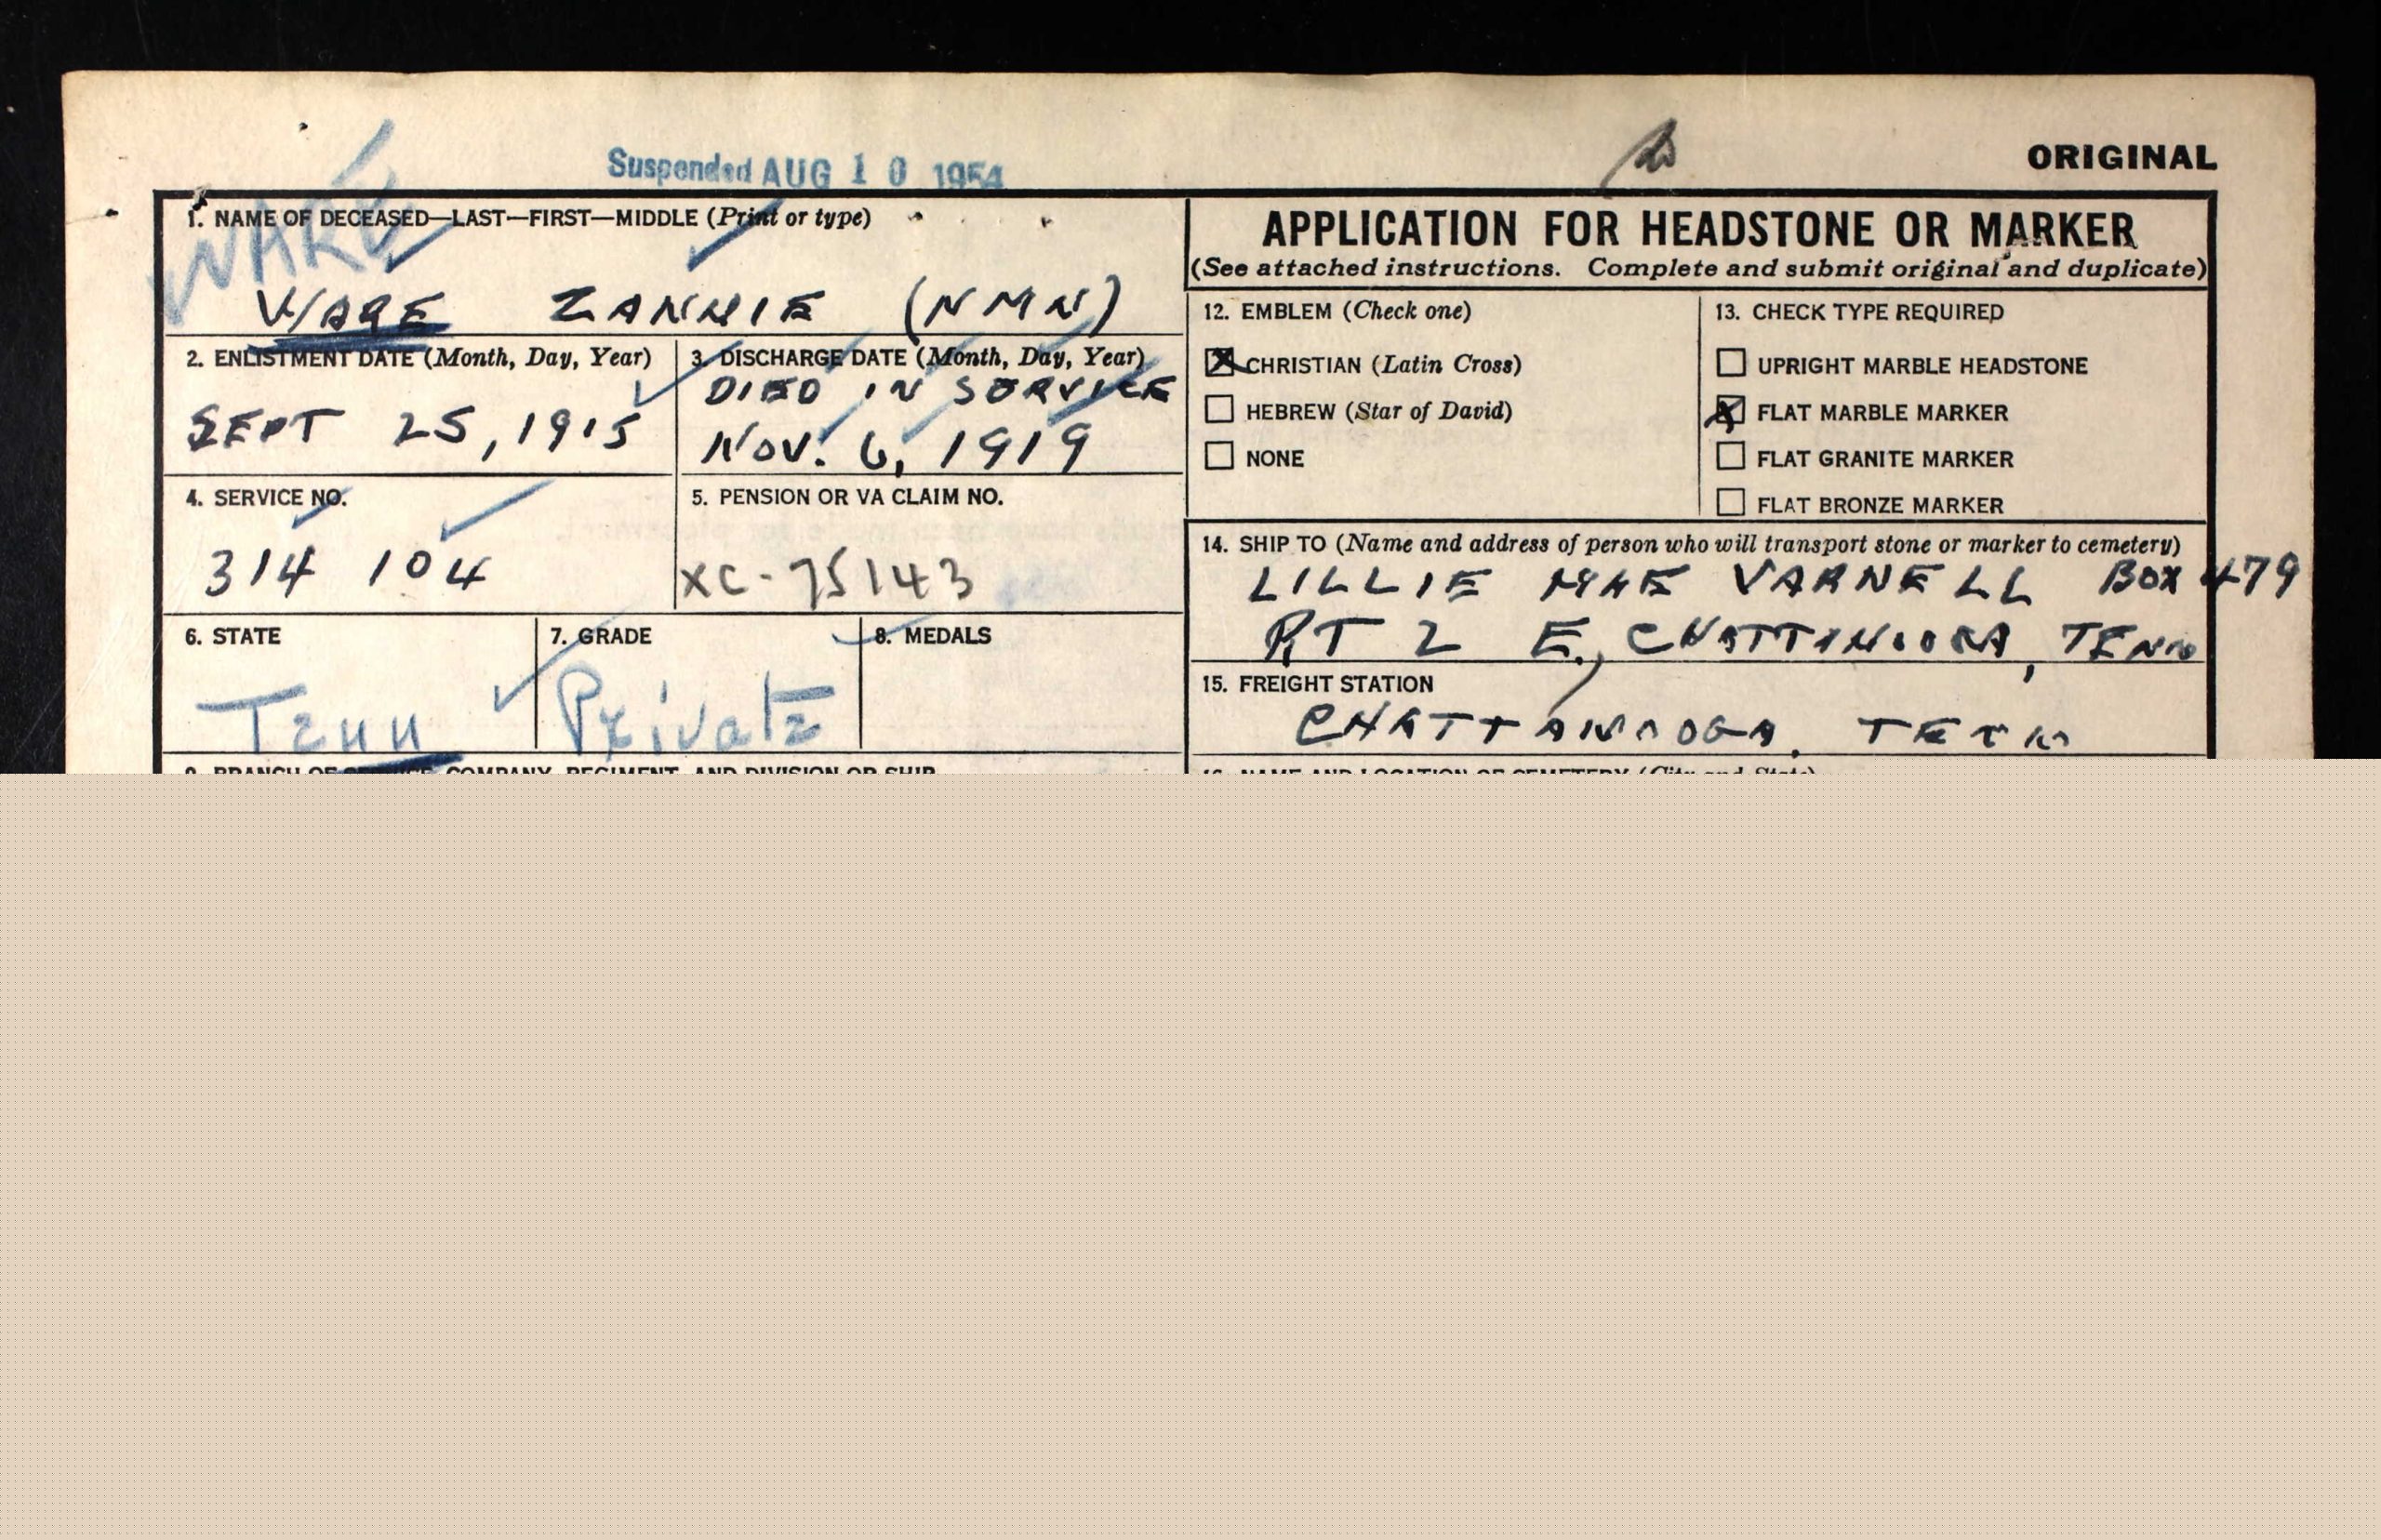 Suspended AUG 10 1954
ORIGINAL
WARE
1. NAME OF DECEASED—LAST—FIRST—MIDDLE (Print or type)
WARE ZANNIE (NMN)
2. ENLISTMENT DATE (Month, Day, Year)
SEPT 25, 1915
3. DISCHARGE DATE (Month, Day, Year)
DIED IN SERVICE
NOV. 6, 1919
4. SERVICE NO.
314 104
5. PENSION OR VA CLAIM NO.
XC-75143
6. STATE
Tenn
7. GRADE
Private
8. MEDALS
9. BRANCH OF SERVICE, COMPANY, REGIMENT, AND DIVISION OR SHIP
APPLICATION FOR HEADSTONE OR MARKER
(See attached instructions. Complete and submit original and duplicate)
12. EMBLEM (Check one)
CHRISTIAN (Latin Cross)
HEBREW (Star of David)
NONE
13. CHECK TYPE REQUIRED
UPRIGHT MARBLE HEADSTONE
FLAT MARBLE MARKER
FLAT GRANITE MARKER
FLAT BRONZE MARKER
14. SHIP TO (Name and address of person who will transport stone or marker to cemetery)
LILLIE MAE VARNELL BOX 479
RT 2 E., CHATTANOOGA, TENN
15. FREIGHT STATION
CHATTANOOGA, TENN
16. NAME AND LOCATION OF CEMETERY (City and State)